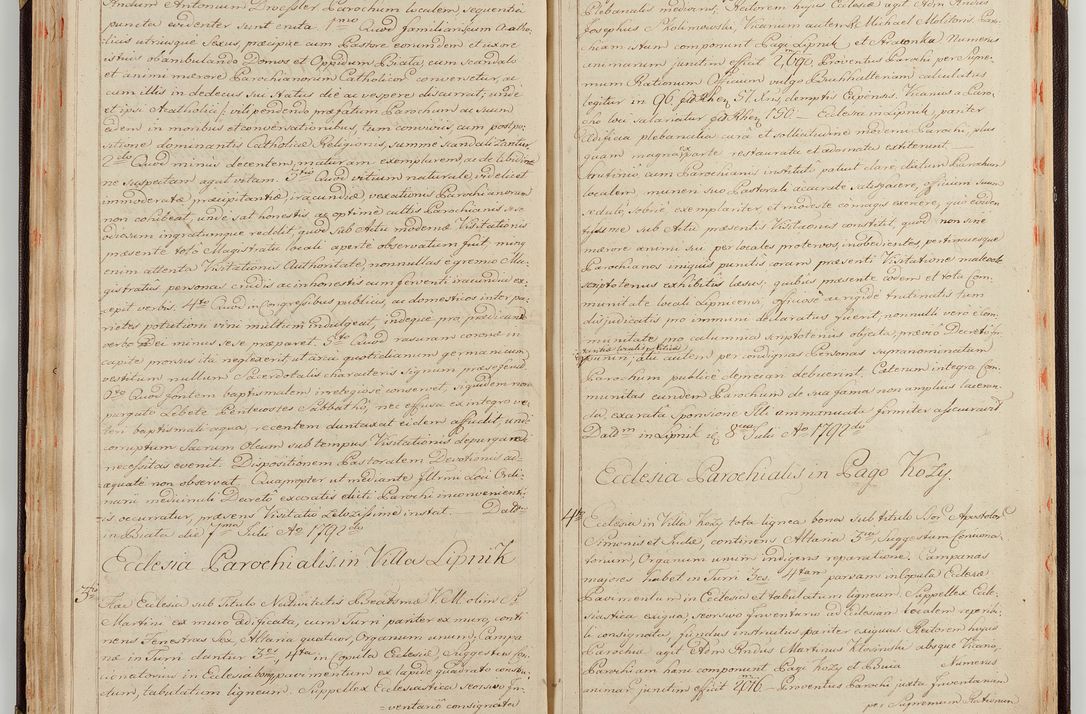 Andum Antonium Droessler Parochum localem, sequentia
puncta evidenter sunt enata. 1mo Quod familiarissimum Acatho-
licis utriusque Sexus, præcipue cum Pastore eorundem et uxore
istius obambulando Domos et Oppidum Biala, cum scandalo
et animi mærore Parochianorum Catholicor conversetur, ac
cum illis in dedecus sui status die ac vespere discurrat, unde
et ipsi Acatholici vilipendendo præfatum Parochum ac suum
eidem in moribus et conversationibus, tum conviviis cum postpo-
sitione dominantis Catholicæ Religionis, summe scandalizantur
2do Quod minus decentem, maturam exemplarem, ac de libidine
ne suspectam agat vitam. 3tio Quod vitium naturale, videlicet
immoderatæ præcipitantiæ, iracundiæ, vexationis Parochianorum
non cohibeat, unde sat honestis ac optime cultis Parochianis se
odiosum ingratumque reddit, quod sub Actu modernæ Visitationis
præsente toto Magistratu locali aperte observatum fuit, minus
enim attenta Visitationis Authoritate, nonnullas e gremio Ma-
gistratus, personas crudis ac inhonestis cum ferventi iracundia ex-
cepit verbis. 4to Quod in Congressibus publicis, ac domesticos inter pa-
rietes potationi vini multum indulgeat, indeque pro prædicando
verbo Dei minus sese præparet. 5to Quod rasuram coronæ in
capite prorsus ita neglexerit ut accu quotidianum germanicum
vestitum nullum Sacerdotalis characteris signum præseferat
6to Quod fontem baptismalem irreligiose conservet, siquidem non
purgato Lebete Pentecostes Sabbatho, nec effusa ex integro ve-
teri baptismali aqua, recentem duntaxat eidem affudit, unde
corruptum Sacrum Oleum sub tempus Visitationis depurgandi
necessitas evenit. Dispositionem Pastoralem Devotionis ad-
æquate non observat. Quapropter ut mediante Illmi Loci Ordi-
narii medicinali Decreto exoratis dicti Parochi inconvenienti-
is occurratur, præsens Visitatio zelosissime instat. Datm
in Biala die 7ma Julii Ao 1792do
Ecclesia Parochialis in Villa Lipnik
3tio
Hæc Ecclesia sub Titulo Nativitatis Beatissmæ V. M. olim S.
Martini ex muro ædificata, cum Turri pariter ex muro, conti-
nens Fenestras Sex, Altaria quatuor, Organum unum, Campa-
næ in Turri dantur 3es, 4ta in Copula Ecclesiæ, Suggestus Con-
cionatorius in Ecclesia bonus, pavimentum ex lapide quadrato constru-
ctum, tabulatum ligneum. Suppellex Ecclesiastica seorsivo In-
ventario consignata
Plebanalis melioris; Rectorem hujus Ecclesiæ agit Adm Rndus
Josephus Cholimowski, Vicarium autem R. Michael Molitoris. Paro-
chiam istam component Pagi Lipnik et Straconka, Numerus
animarum junctim efficit 2690. Proventus Parochi per Supre-
mum Rationum Officium vulgo Buchhalterium calculatus
legitur in 96. xr, demptis Expensis. Vicarius a Paro-
cho loci salariatur 150. Ecclesia in Lipnik, pariter
ædificia plebanalia cura et sollicitudine moderni Parochi, plus
quam magna ex parte restaurata et adornata extiterunt.
Scrutinio cum Parochianis instituto patuit clare, dictum Parochum
localem, muneri suo Pastorali accurate satisfacere, officium suum
sedulo, sobrie exemplariter, et modeste comagis exercere, quo eviden-
tissime sub Actu præsentis Visitationis constitit, quod non sine
mærore animi sui per locales protervos, inobedientes, pertinacesque
Parochianos iniquis punctis coram præsenti Visitatione malevole
scriptotenus exhibitis læsus; quibus præsente eodem et tota Com-
munitate locali Lipnicensi, officiose ac rigide trutinatis tum
disjudicatis pro immuni declaratus fuerit, nonnulli vero e Com-
munitate pro calumnia scriptotenus objecta, prævio Decreto
puniri, alii autem per condignas Personas supranominatum
Parochum publice deprecari debuerint. Cæterum integra Com-
munitas eundem Parochum de sua fama non amplius laceran-
da exarata Sponsione Illi emmanuata firmiter assecuravit
Datm in Lipnik 8va Julii Ao 1792do
Ecclesia Parochialis in Pago Kozy.
4to
Ecclesia in Villa Kozy tota lignea bona sub titulo SSor Apostolor
Simonis et Judæ, continens Altaria 3ia, Suggestum Conciona-
torium, Organum unum indigens reparatione. Campanas
majores habet in Turri 3es. 4tam parvam in Copula Ecclesiæ
Pavimentum in Ecclesia et tabulatum ligneum. Suppellex Eccle-
siastica exigua, seorsivo Inventario ad Ecclesiam localem reperibi-
li consignata, fundus instructus pariter exiguus. Rectorem hujus
Parochiæ agit Adm Rndus Martinus Klosinski absque Vicario,
Parochiam hanc component Pagi Kozy et Bujaków. Numerus
animar junctim efficit 2016. Proventus Parochi juxta Inventarium
per Supremum Rationum